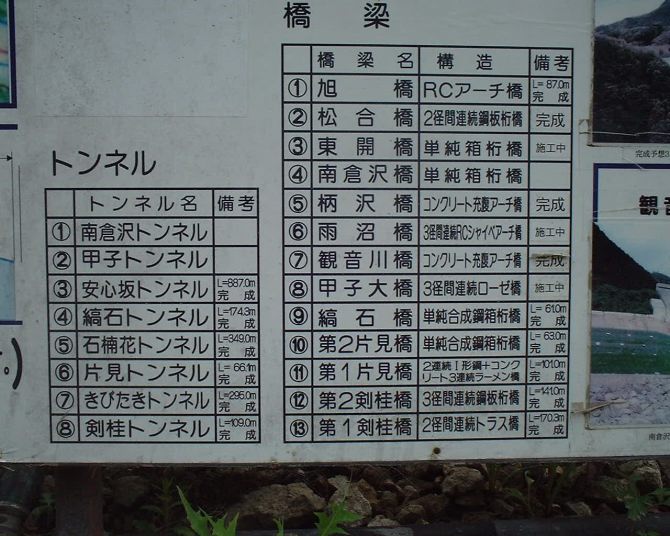 橋 梁
橋 梁 名 構 造 備考
① 旭 橋 RCアーチ橋 L= 87.0m 完 成
② 松 合 橋 2径間連続鋼板桁橋 完成
③ 東 開 橋 単純箱桁橋 施工中
④ 南倉沢橋 単純箱桁橋
⑤ 柄 沢 橋 コンクリート充腹アーチ橋 完成
⑥ 雨 沼 橋 3径間連続RCシャイベアーチ橋 施工中
⑦ 観音川橋 コンクリート充腹アーチ橋 完成
⑧ 甲子大橋 3径間連続ローゼ橋 施工中
⑨ 縞 石 橋 単純合成鋼箱桁橋 L= 61.0m 完 成
⑩ 第2片見橋 単純合成鋼箱桁橋 L= 63.0m 完 成
⑪ 第1片見橋 2連続I形鋼+コンクリート3連続ラーメン橋 L=101.0m 完 成
⑫ 第2剣桂橋 3径間連続鋼板桁橋 L=141.0m 完 成
⑬ 第1剣桂橋 2径間連続トラス橋 L=170.3m 完 成
トンネル
トンネル名 備考
① 南倉沢トンネル
② 甲子トンネル
③ 安心坂トンネル L=887.0m 完 成
④ 縞石トンネル L=174.3m 完 成
⑤ 石楠花トンネル L=349.0m 完 成
⑥ 片見トンネル L= 66.1m 完 成
⑦ きびたきトンネル L=295.0m 完 成
⑧ 剣桂トンネル L=109.0m 完 成
完成予想
観音
南倉沢